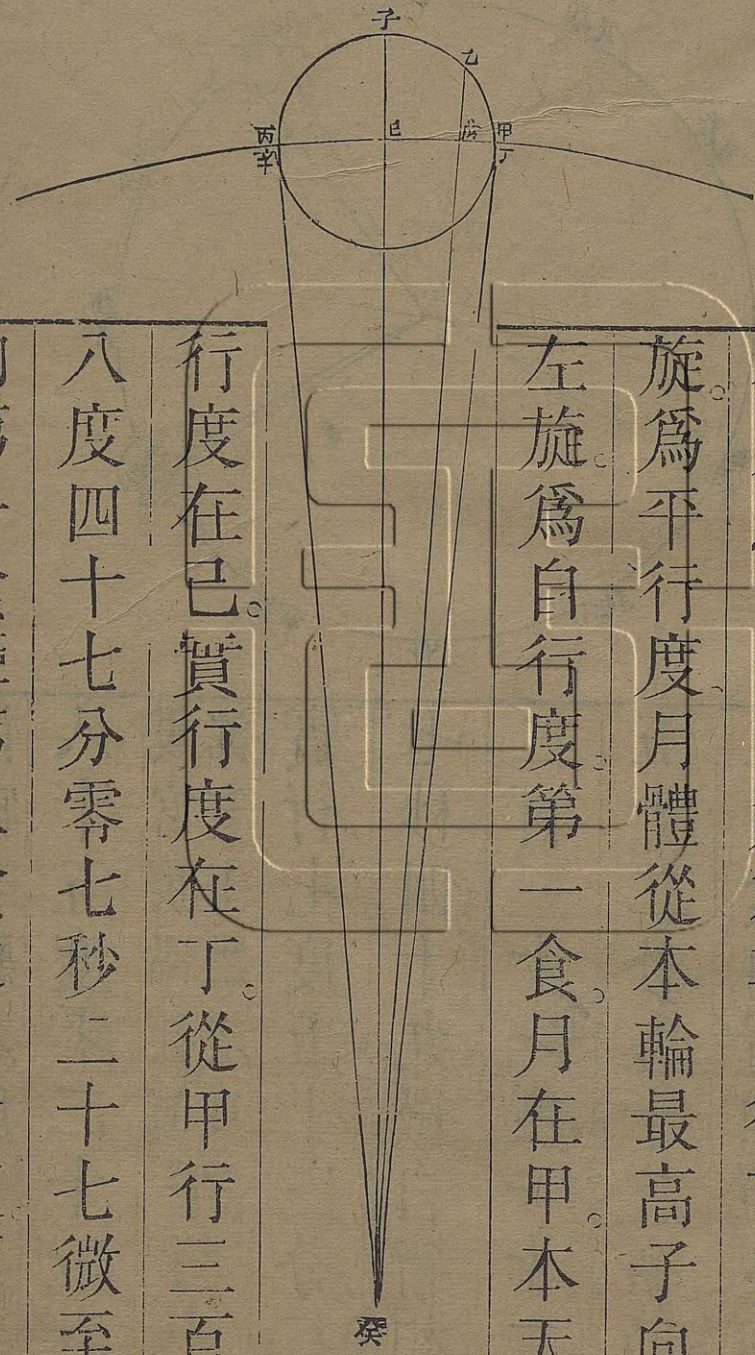 子
乙
丙
辛
己
戊
甲
丁
癸
旋。爲平行度。月體從本輪最高子向
左旋。爲自行度。第一食。月在甲。本天
行度在己。實行度在丁。從甲行三百
八度四十七分零七秒二十七微至